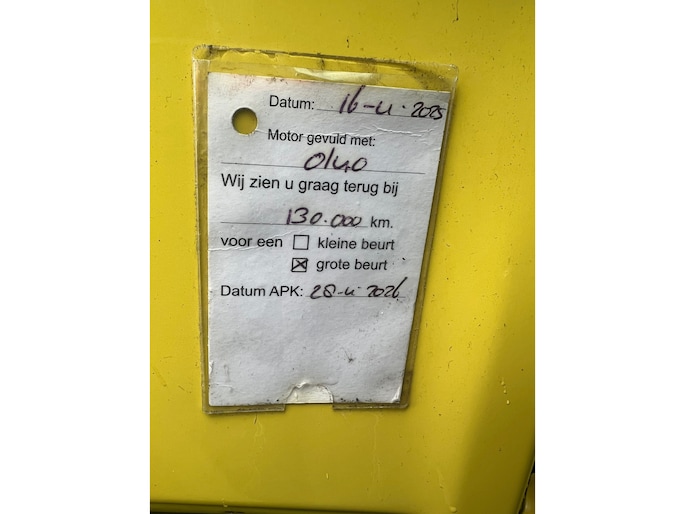 Datum: 16-4-2025
Motor gevuld met:
0/40
Wij zien u graag terug bij
130.000 km.
voor een kleine beurt
grote beurt
Datum APK: 28-4-2026